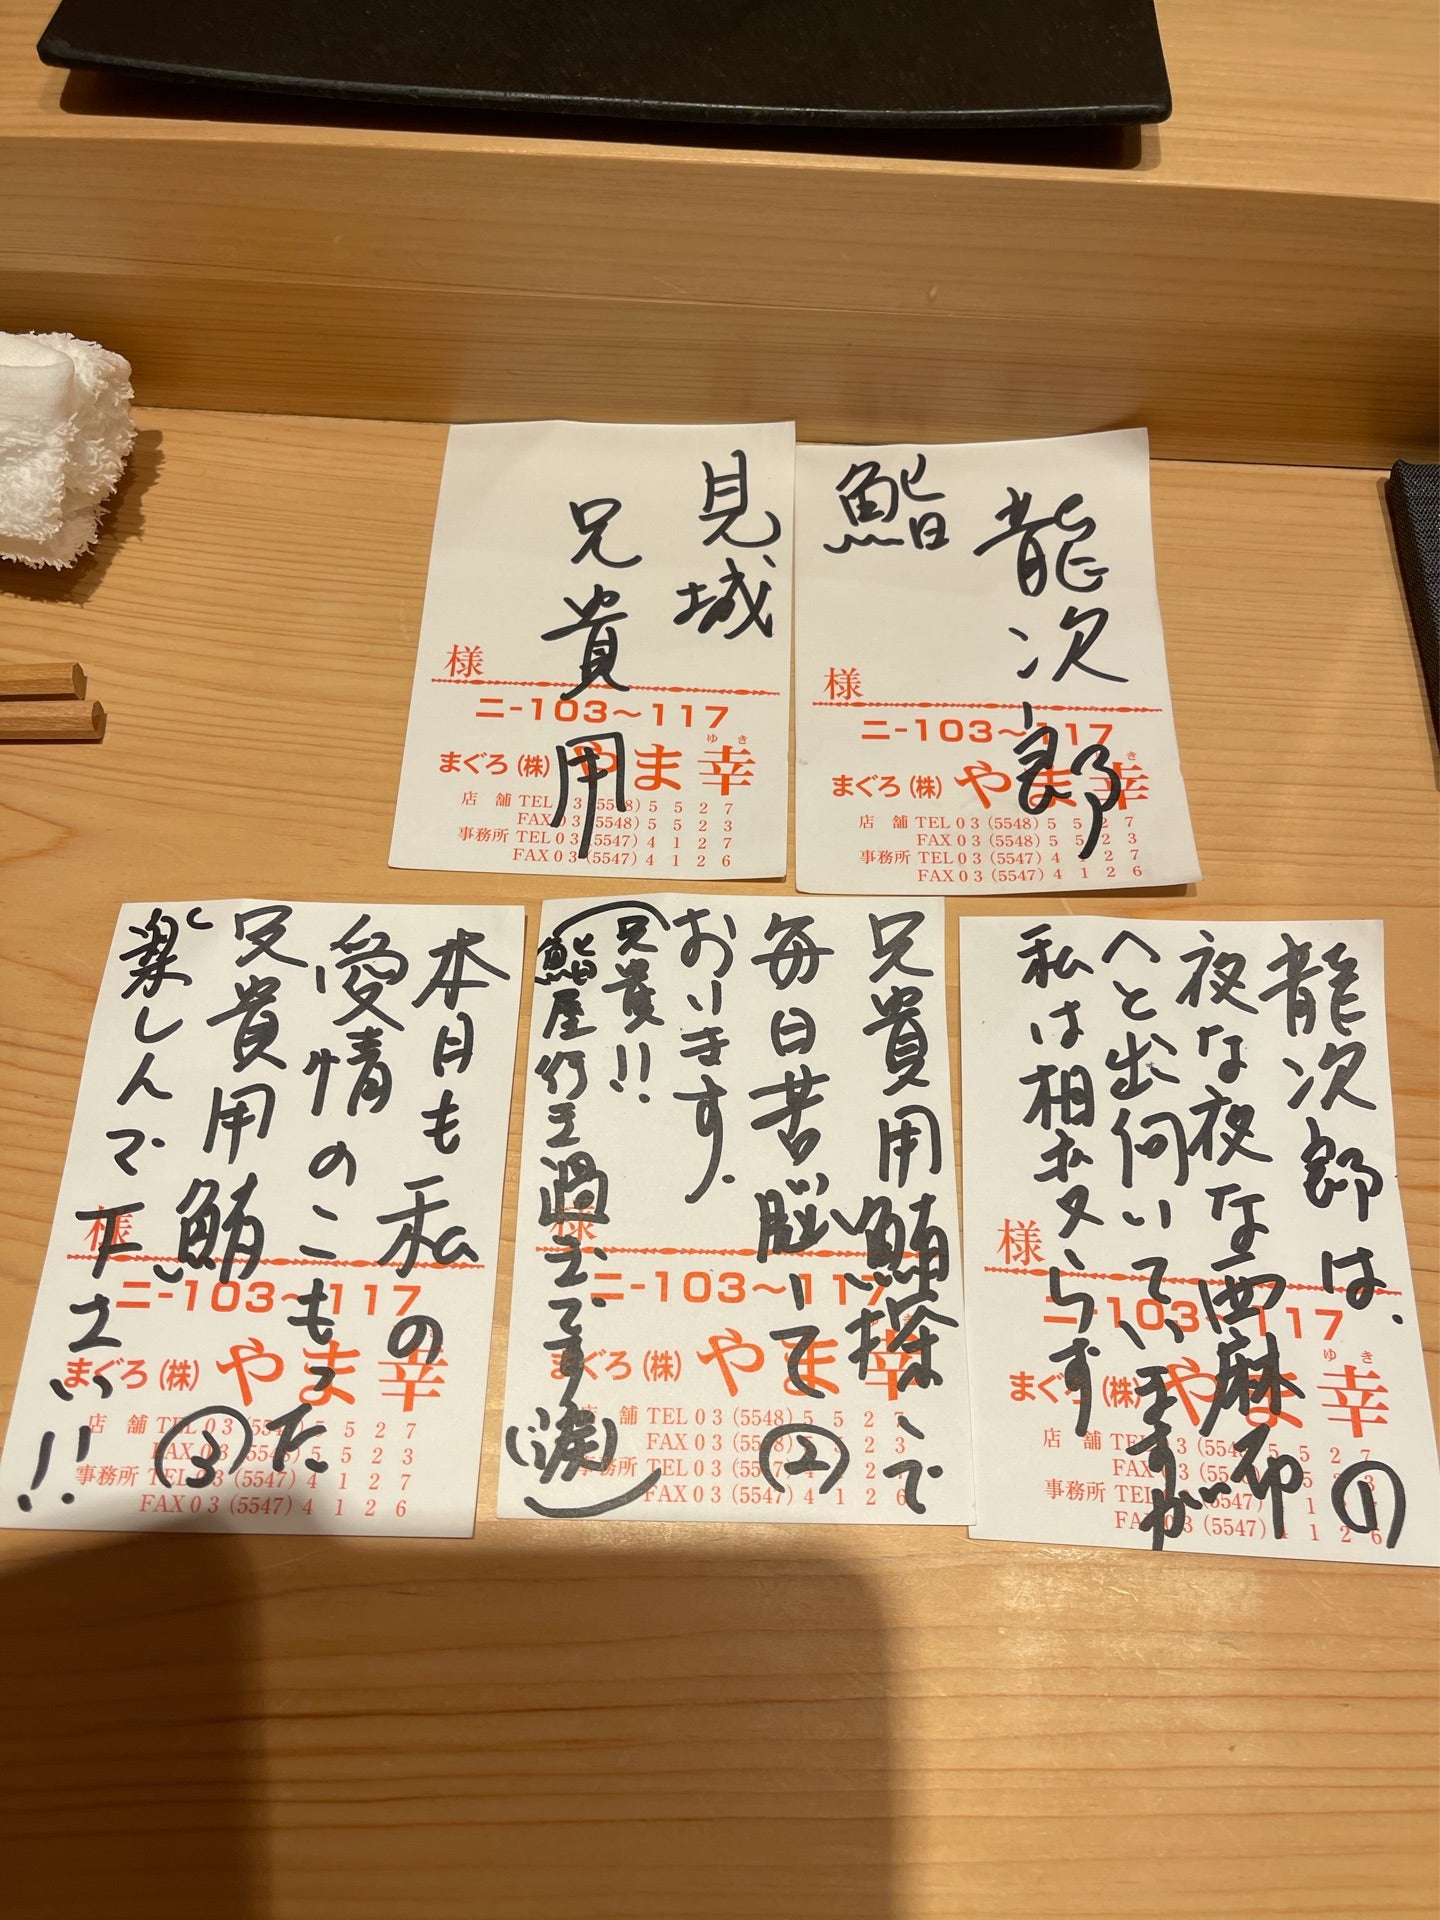 鮨 龍次郎
様
ニ-103～117
まぐろ(株)やま幸
店舗 TEL03(5548)5527
FAX03(5548)5523
事務所 TEL03(5547)4127
FAX03(5547)4126
見城
兄貴用
様
ニ-103～117
ゆき
まぐろ(株)やま幸
店舗 TEL03(5548)5527
FAX03(5548)5523
事務所 TEL03(5547)4127
FAX03(5547)4126
龍次郎は、
夜な夜な西麻布
へと出向いていますが
私は相も変らず
①
様
ニ-103～117
ゆき
まぐろ(株)やま幸
店舗 TEL03(5548)5527
FAX03(5548)5523
事務所 TEL03(5547)4127
FAX03(5547)4126
兄貴用鮪探しで
毎日苦悩して
おります。
(兄貴!!
鮨屋行き過ぎです(涙))
②
様
ニ-103～117
まぐろ(株)やま幸
店舗 TEL03(5548)5527
FAX03(5548)5523
事務所 TEL03(5547)4127
FAX03(5547)4126
本日も私の
愛情のこもった
兄貴用鮪
楽しんで下さい!!
③
様
ニ-103～117
まぐろ(株)やま幸
店舗 TEL03(5548)5527
FAX03(5548)5523
事務所 TEL03(5547)4127
FAX03(5547)4126